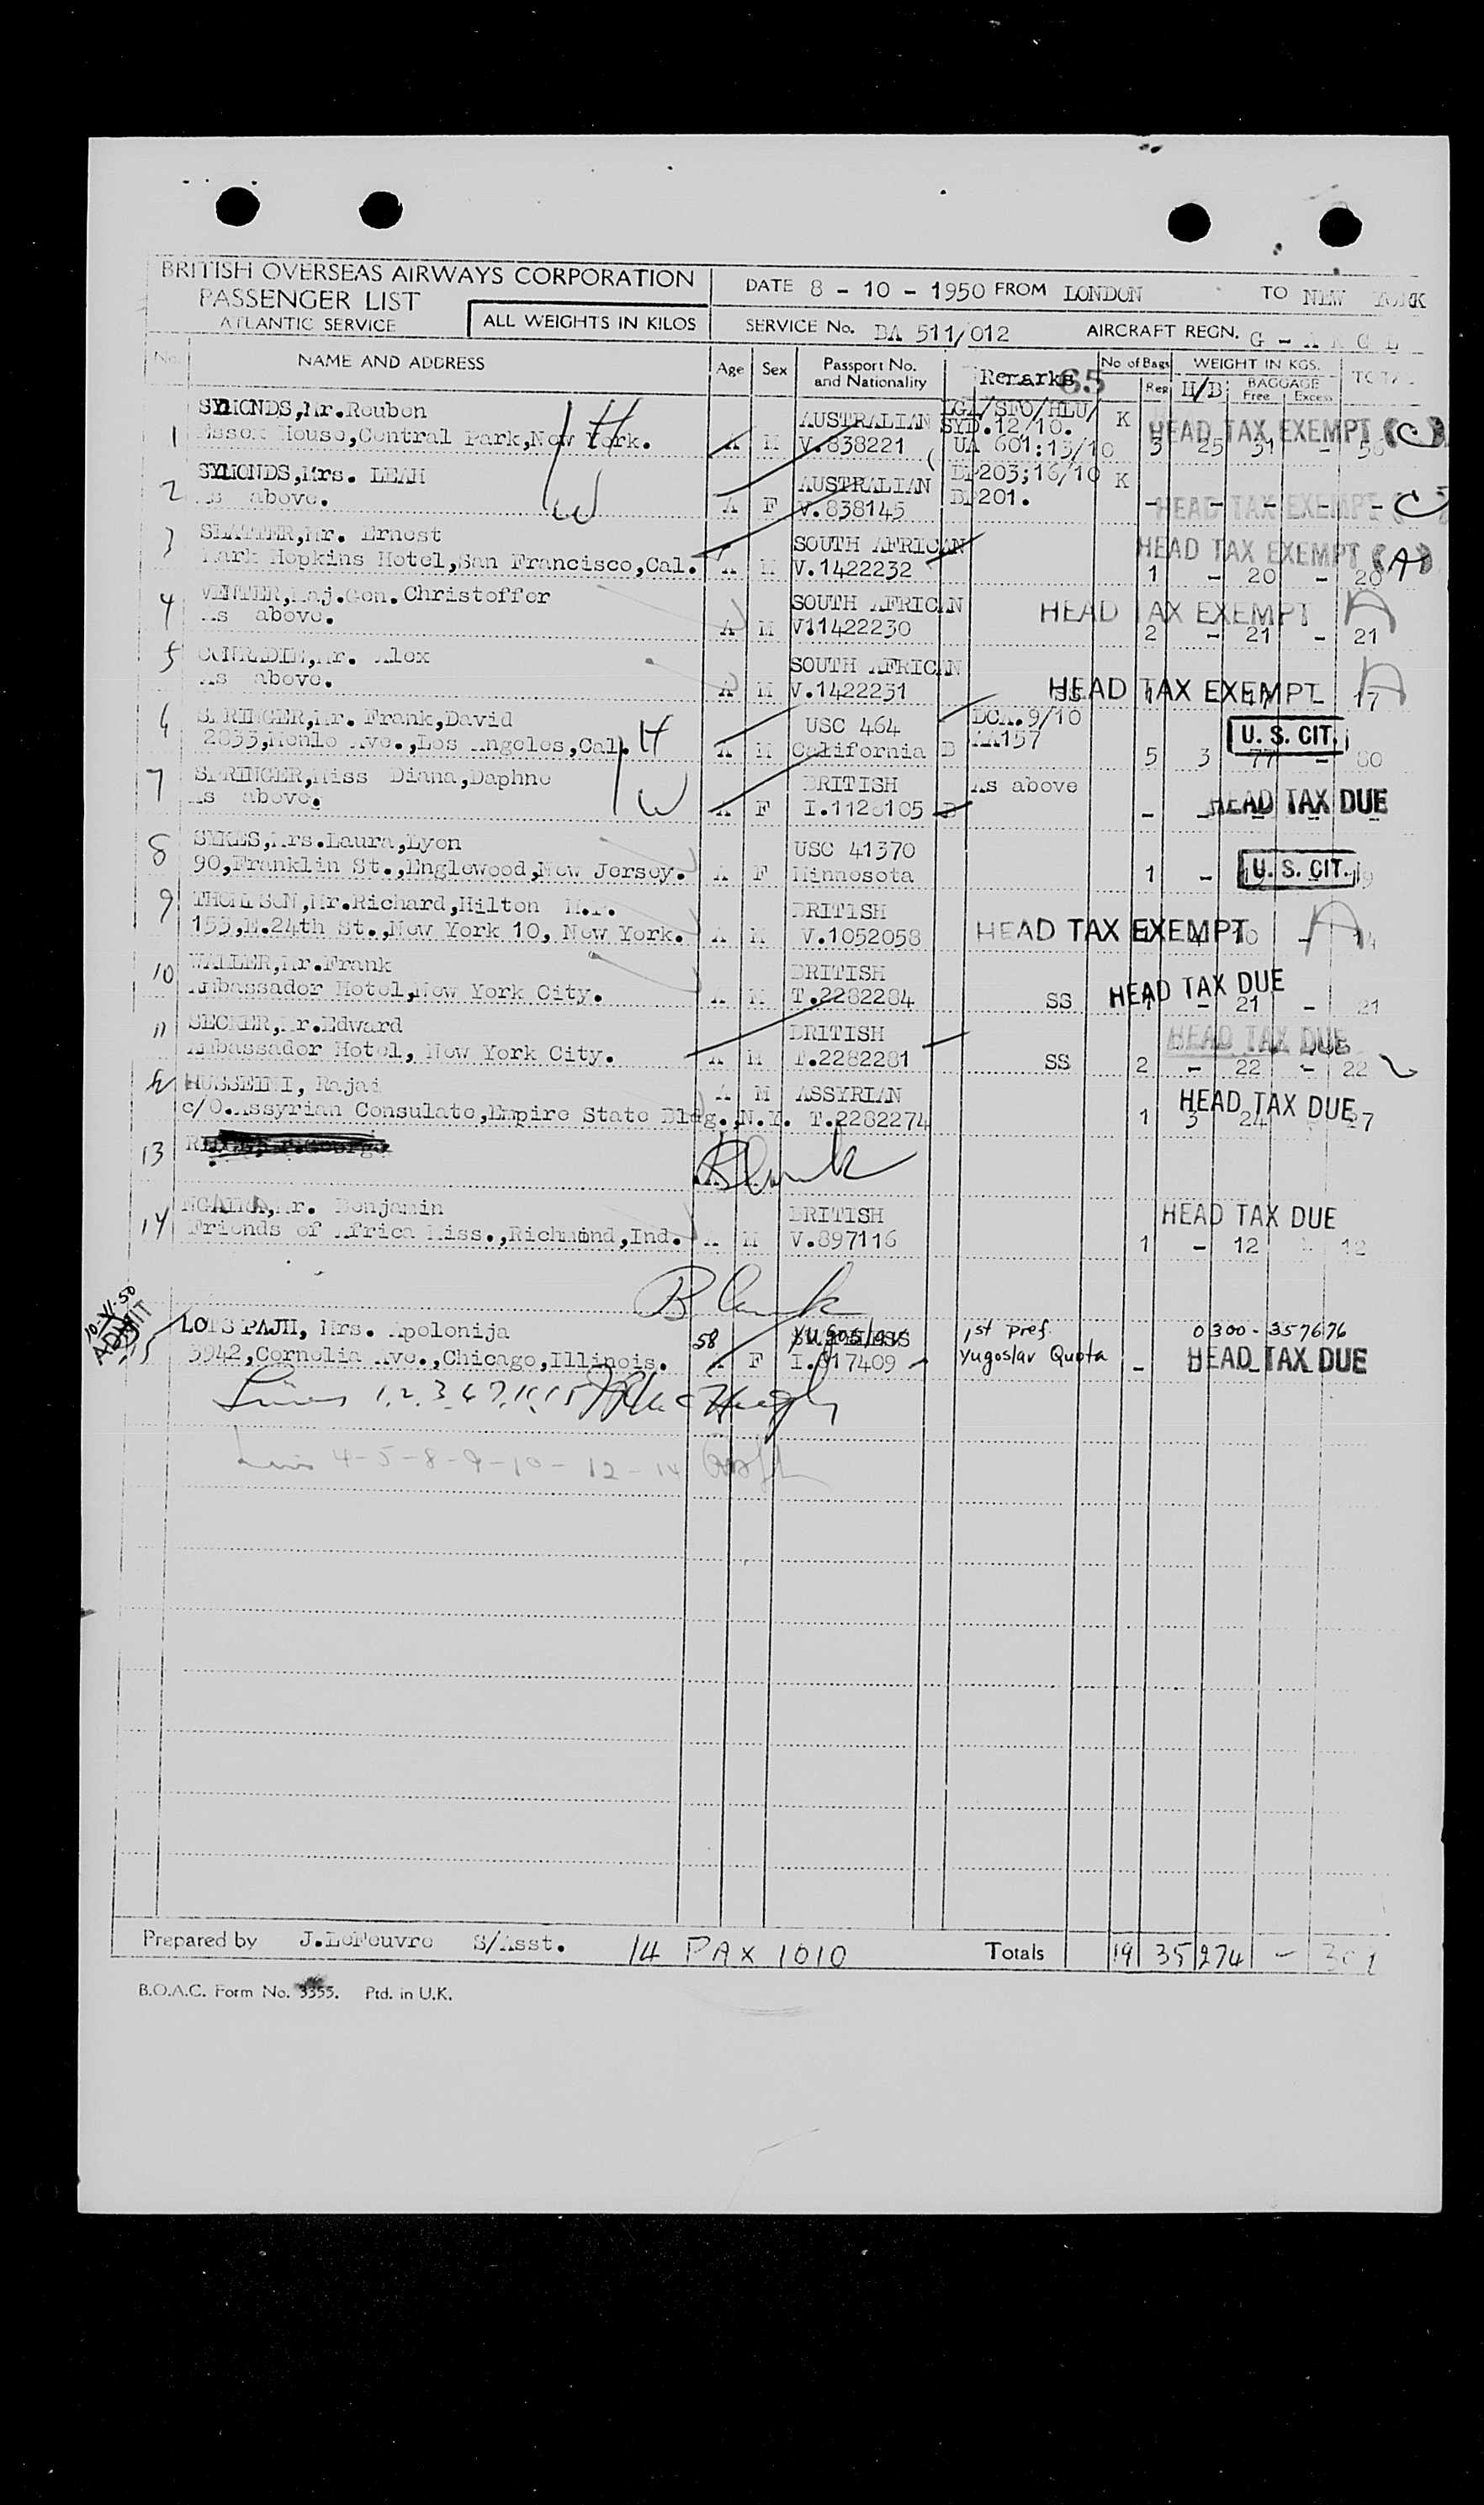 BRITISH OVERSEAS AIRWAYS CORPORATION
PASSENGER LIST
ATLANTIC SERVICE
ALL WEIGHTS IN KILOS
DATE 8 - 10 - 1950 FROM LONDON TO NEW YORK
SERVICE No. BA 511/012 AIRCRAFT REGN. G -
No. NAME AND ADDRESS Age Sex Passport No. and Nationality Remarks 65 No of Bags Reg WEIGHT IN KGS. H/B BAGGAGE Free Excess TOTAL
SYMONDS, Mr. Reuben AUSTRALIAN LGA/SFO/HLU/ K HEAD TAX EXEMPT (C)
1 Essex House, Central Park, New York. A M V.838221 SYD.12/10. UA 601:13/10 3 25 31 - 56
SYMONDS, Mrs. LEAH AUSTRALIAN BP203;16/10 K
2 As above. A F V.838145 BP201. - - - - - HEAD TAX EXEMPT C
SLATTER, Mr. Ernest SOUTH AFRICAN HEAD TAX EXEMPT (A)
3 Mark Hopkins Hotel, San Francisco, Cal. A M V.1422232 1 - 20 - 20
4 VENTER, Maj.Gen. Christoffer SOUTH AFRICAN HEAD TAX EXEMPT A
As above. A M V11422230 2 - 21 - 21
5 Mr. Alex SOUTH AFRICAN
As above. A M V.1422231 SS HEAD TAX EXEMPT 1 - 17 - 17 A
6 SPRINGER, Mr. Frank, David USC 464 DCA.9/10 U. S. CIT.
2833, Menlo Ave., Los Angeles, Cal. H A M California B AA157 5 3 77 - 80
7 SPRINGER, Miss Diana, Daphne BRITISH As above
As above. W A F I.1128105 B - HEAD TAX DUE
8 SYKES, Mrs. Laura, Lyon USC 41370
90, Franklin St., Englewood, New Jersey. A F Minnesota 1 - U. S. CIT.
9 THOMPSON, Mr. Richard, Hilton BRITISH
155, E. 24th St., New York 10, New York. A M V.1052058 HEAD TAX EXEMPT A
10 WALLER, Mr. Frank BRITISH
Ambassador Hotel, New York City. A M T.2282284 SS HEAD TAX DUE 1 - 21 - 21
11 SECKER, Mr. Edward BRITISH HEAD TAX DUE
Ambassador Hotel, New York City. A M T.2282281 SS 2 - 22 - 22
12 HUSSEINI, Rajai A M ASSYRIAN HEAD TAX DUE
c/O. Assyrian Consulate, Empire State Bldg., N.Y. T.2282274 1 3 24 27
13 Blank
Mr. Benjamin BRITISH HEAD TAX DUE
14 Friends of Africa Miss., Richmond, Ind. A M V.897116 1 - 12 - 12
Blank
10-VI-50
ADMIT
15 Mrs. Apolonija 58 Yugoslav 1st pref. 0300-357676
3942, Cornelia Ave., Chicago, Illinois. A F I.617409 Yugoslav Quota - HEAD TAX DUE
Lines 1, 2, 3, 6, 7, 11, 15
Lines 4-5-8-9-10-12-14
Prepared by J.LeFeuvre S/Asst. 14 PAX 1010 Totals 19 35 274 -
B.O.A.C. Form No. 3355. Ptd. in U.K.